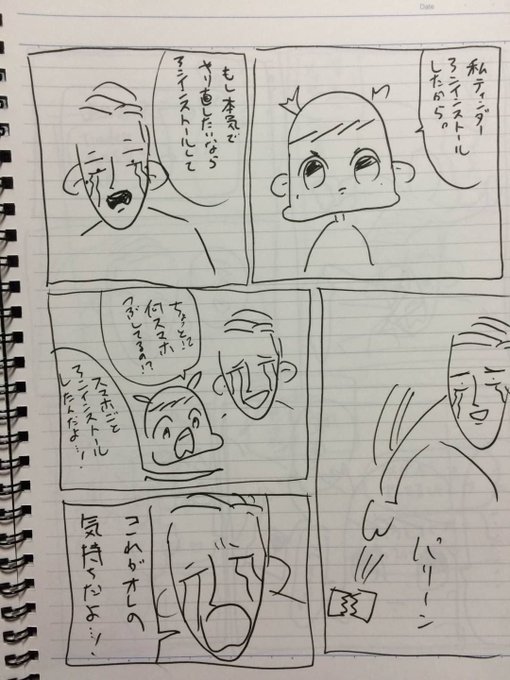 Date
私ティンダー
アンインストール
したから。
もし本気で
やり直したいなら
アンインストールして
バリーン
ちょっと!?
何スマホ
つぶしてるの!?
スマホごと
アンインストール
したんだよ…!
これがオレの
気持ちだよ…!